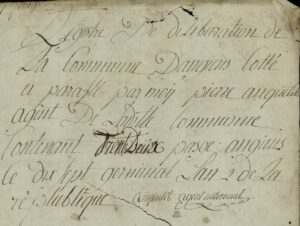 Registre De deliberation de
La Commune Dangiens Cotté
et parafé par moy pierre
agent De Laditte Commune
Contenant page angiens
le dix sept germinal L'an 2 de La
republique agent national